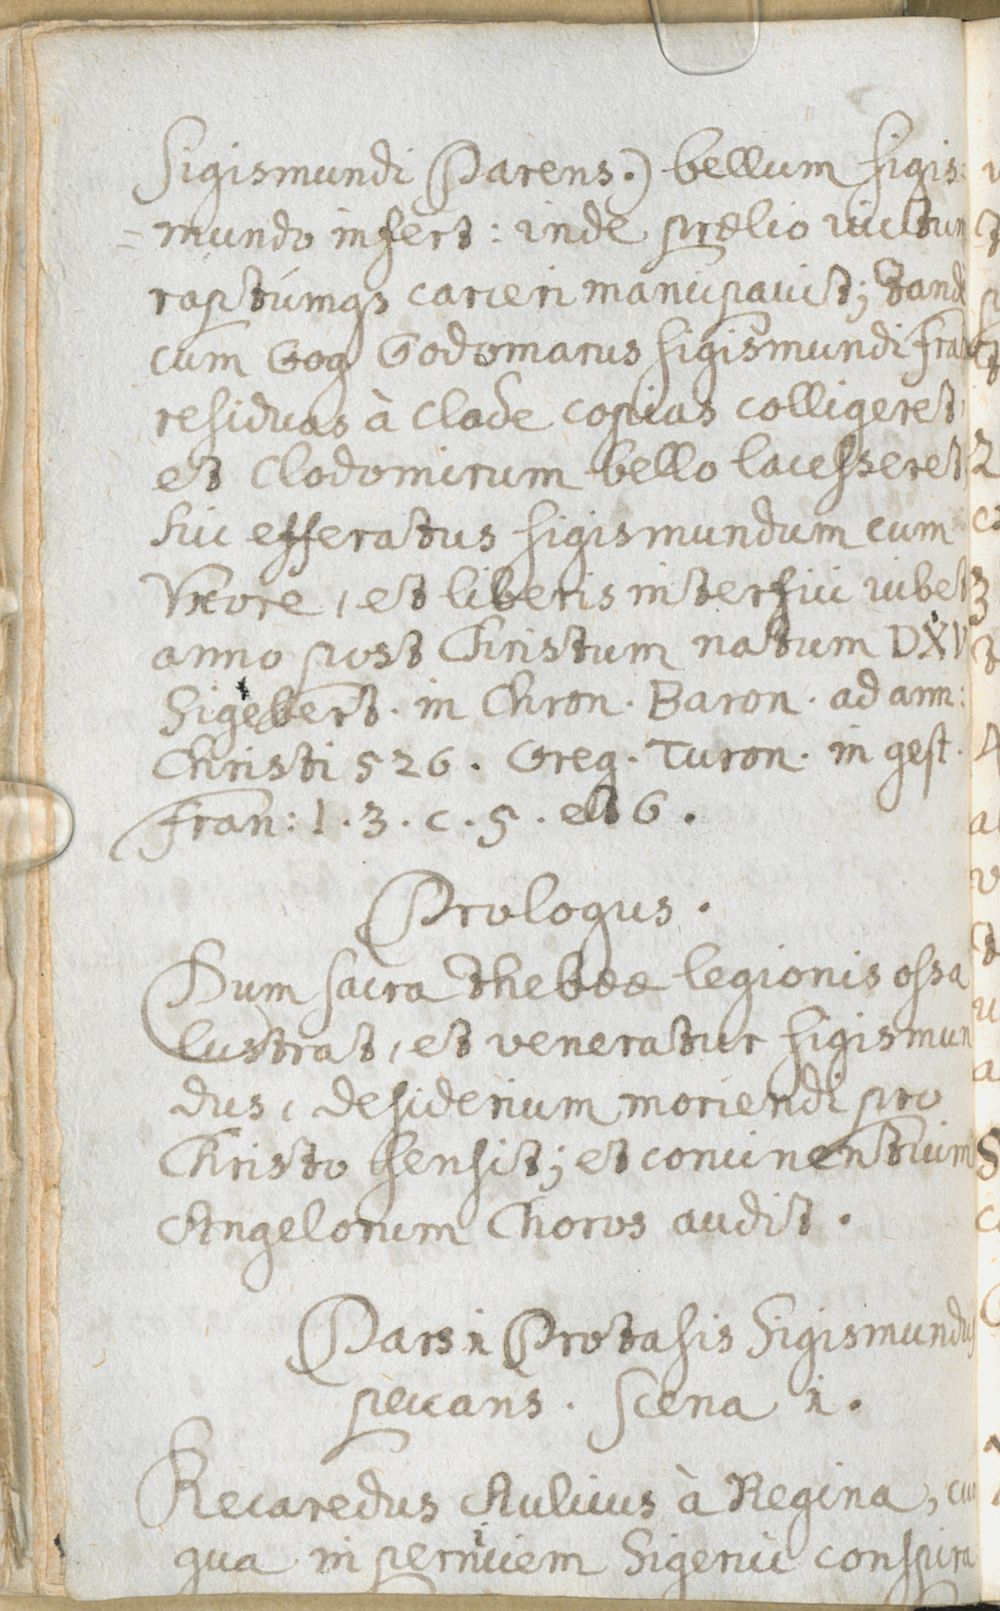 Sigismundi Parens.) bellum Sigis:
=mundo infert: inde prælio victum
raptúmqs carceri mancipavit; tand
cum Gog Godomarus Sigismundi fra
residuas à clade copias colligeret,
et Clodomirum bello lacesseret,
hic efferatus Sigismundum cum
Vxore, et liberis interfici iubet
anno post Christum natum DXV
Sigebert. in Chron. Baron. ad ann:
Christi 526. Greg. Turon. in gest.
fran: l. 3. c. 5. et 6.
Prologus.
Dum sacra Thebææ legionis ossa
lustrat, et veneratur Sigismun
dus, desiderium moriendi pro
Christo sensit; et concinentium
Angelorum Choros audit.
Pars 1 Protasis Sigismundus
peccans. Scena 1.
Recaredus Aulicus à Regina, cum
qua in perniciem Sigerici conspira